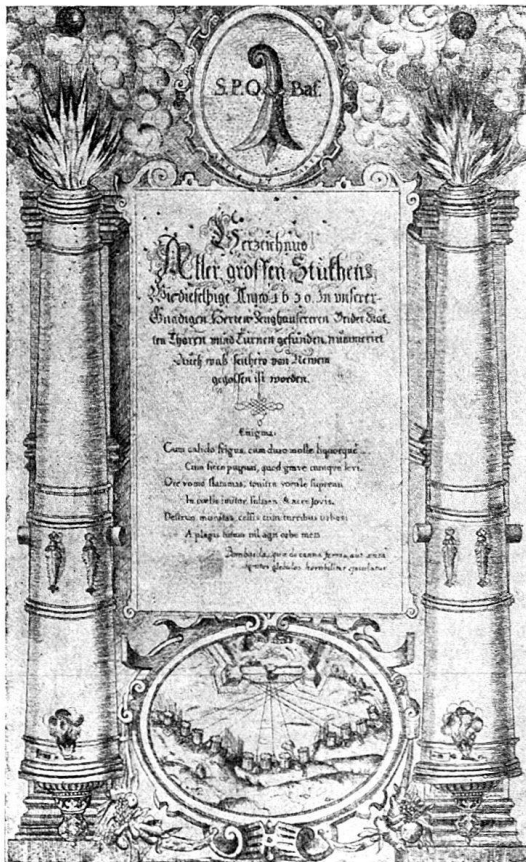 S.P.Q. Bas.
Verzeichnus
Aller grossen Stuckhen
Wie dieselbige Anno 1630. In unserer
Gnädigen Herren Zeughäuseren In der Stat
ten Thoren unnd Turnen gefunden, nummeriert
Auch waß seithero von Newem
gegossen ist worden.
Enigma.
Cum calido frigus, cum duro molle, liquorque
Cum sicco pugnat, quod grave cumque levi.
Ore vomo flammas, tonitru
In imitor fulmen, & Jovis.
Destruo munitas, celsis cum turribus urbes:
A plagis in orbe mea
Bombarda, quae de canna ferrea, aut aenea
globulos horribiliter